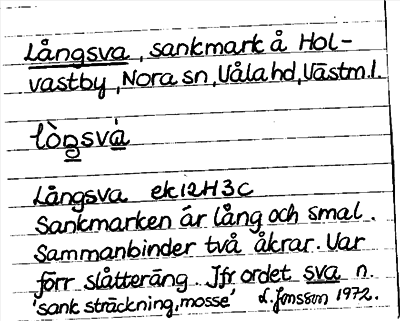 Långsva, sankmark å Hol-
vastby, Nora sn, Våla hd, Västm.l.
lòŋsvá
Långsva ek 12H3c
Sankmarken är lång och smal.
Sammanbinder två åkrar. Var
förr slåtteräng. Jfr ordet sva n.
'sank sträckning, mosse' L. Jonsson 1972.